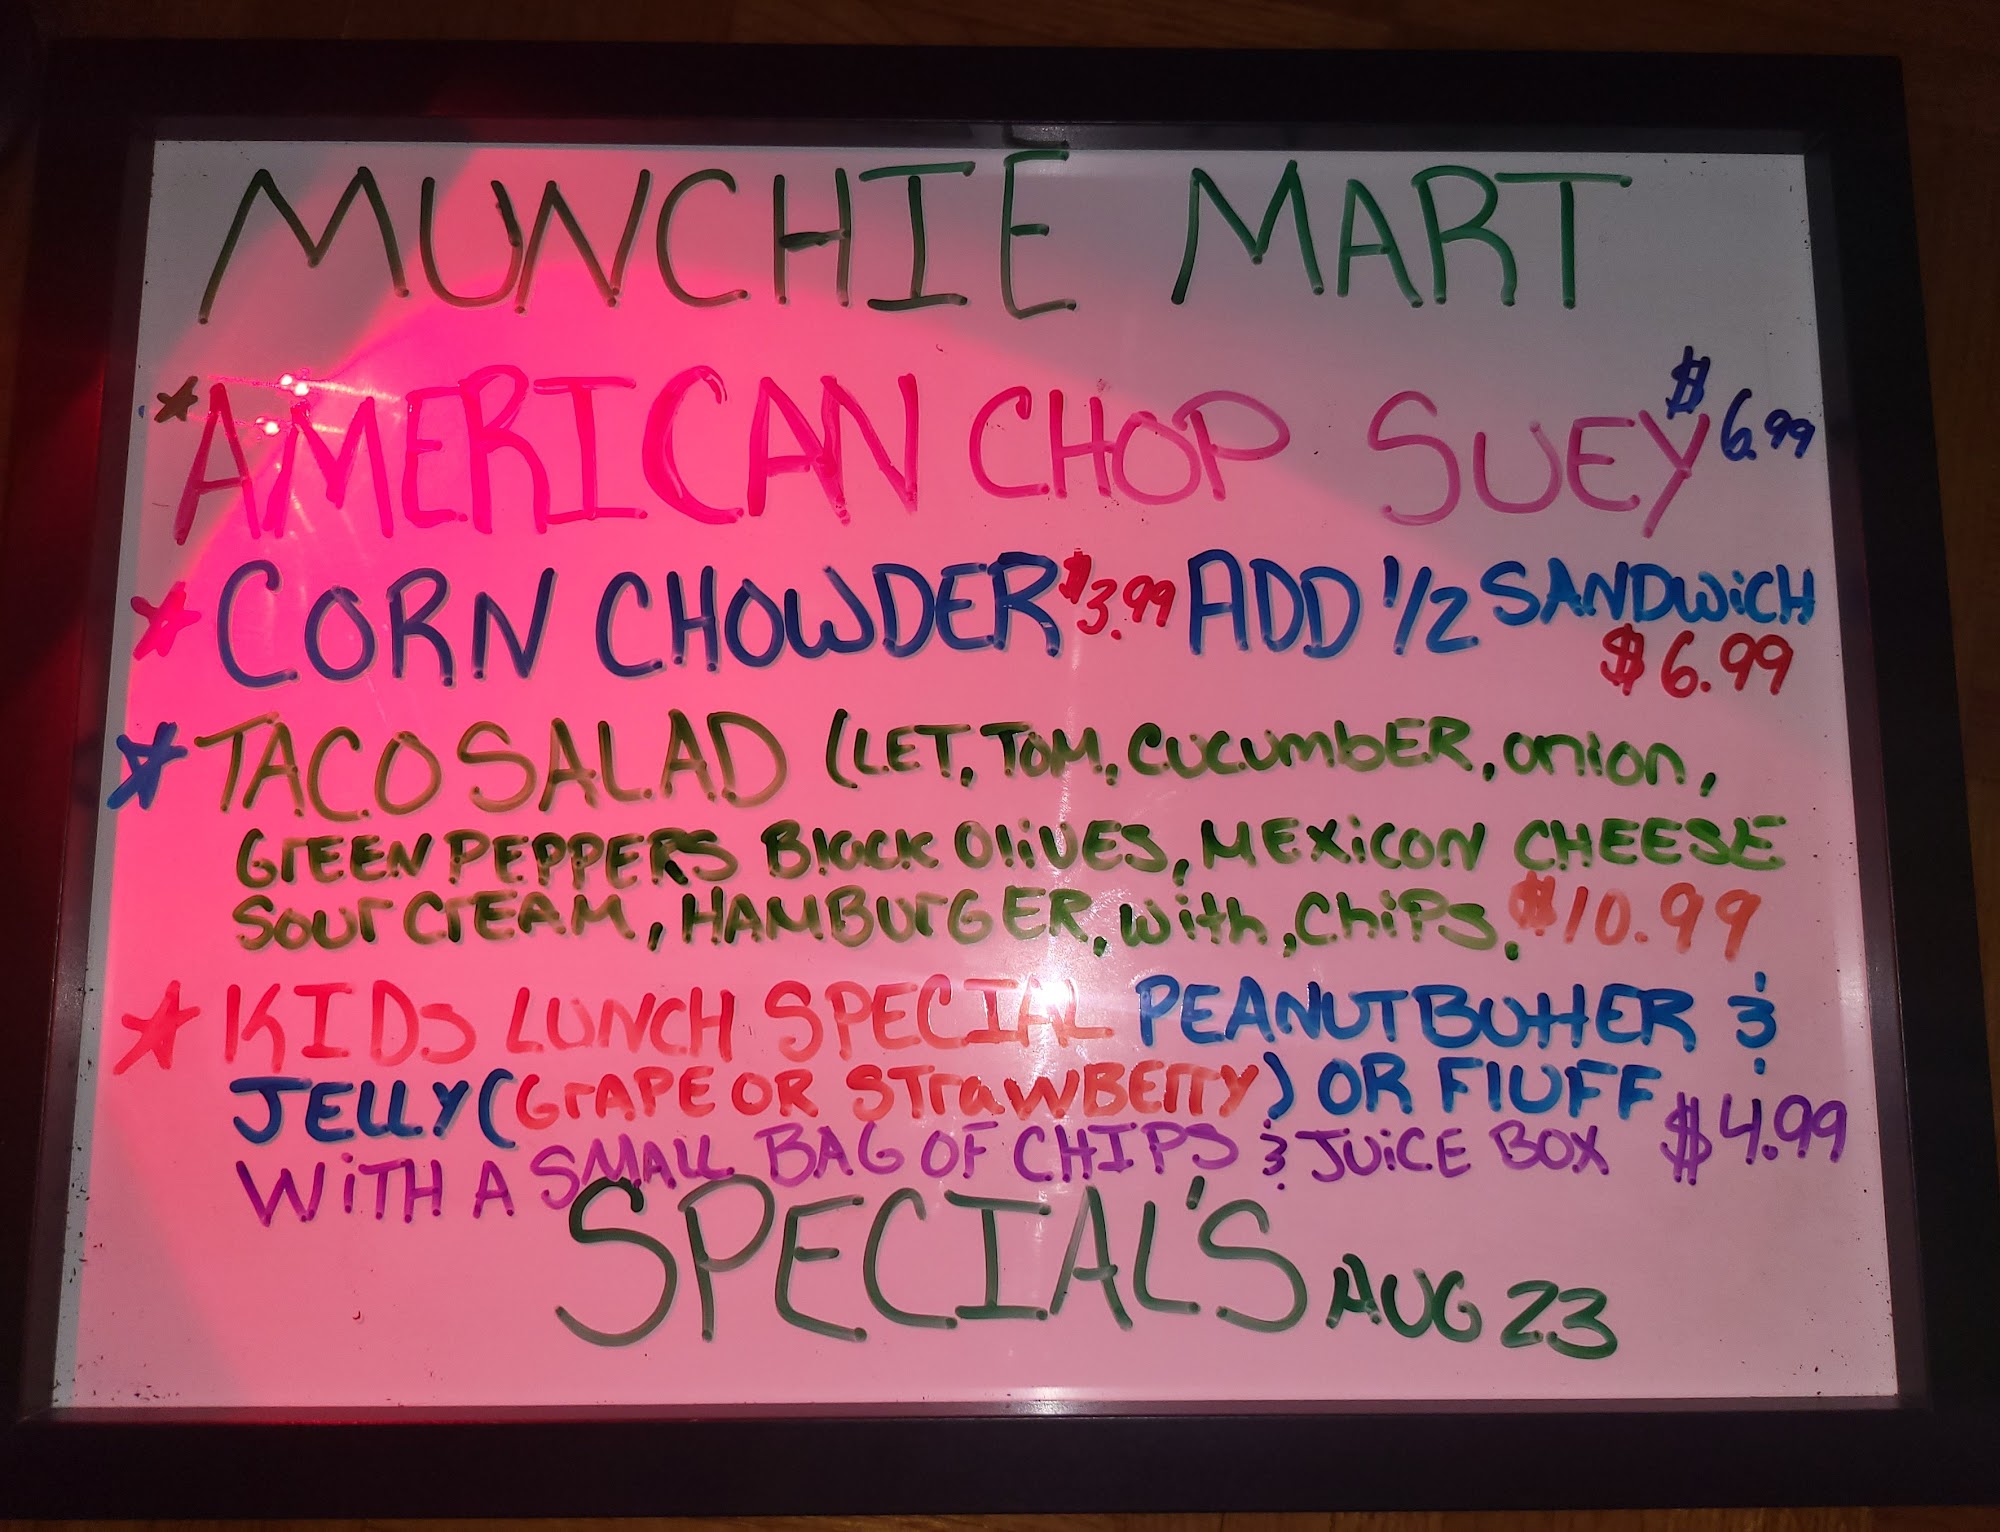 MUNCHIE MART
AMERICAN CHOP SUEY $6.99
CORN CHOWDER $3.99 ADD 1/2 SANDWiCH
$6.99
TACO SALAD (LET, TOM, CUCUmbER, onion,
GrEEN PEPPERS Black OliVES, MEXiCON CHEESE
Sour CrEAM, HAMBUrGER, with, ChiPS, $10.99
KIDS LUNCH SPECIAL PEANUTBUttER &
JELLY (GrAPE OR STrawBErry) OR FlUFF
WiTH A SMALL BAG OF CHIPS & JUiCE BOX $4.99
SPECIAL'S AUG 23